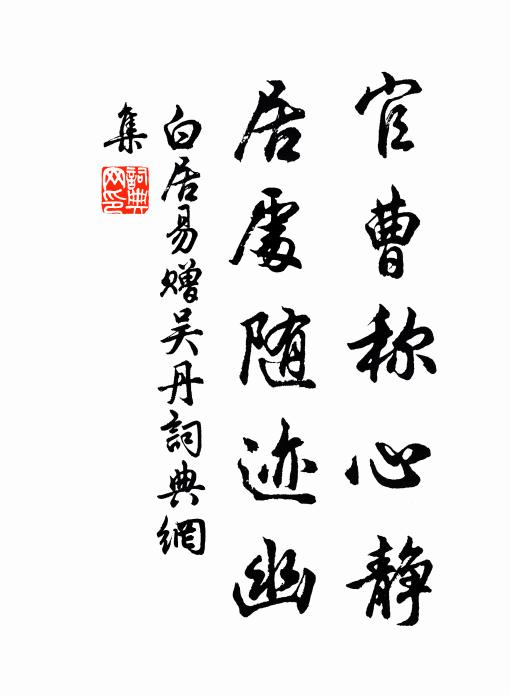 官曹称心静
居處随迹幽
白居易赠吴丹詞典網
集
詞典
网印